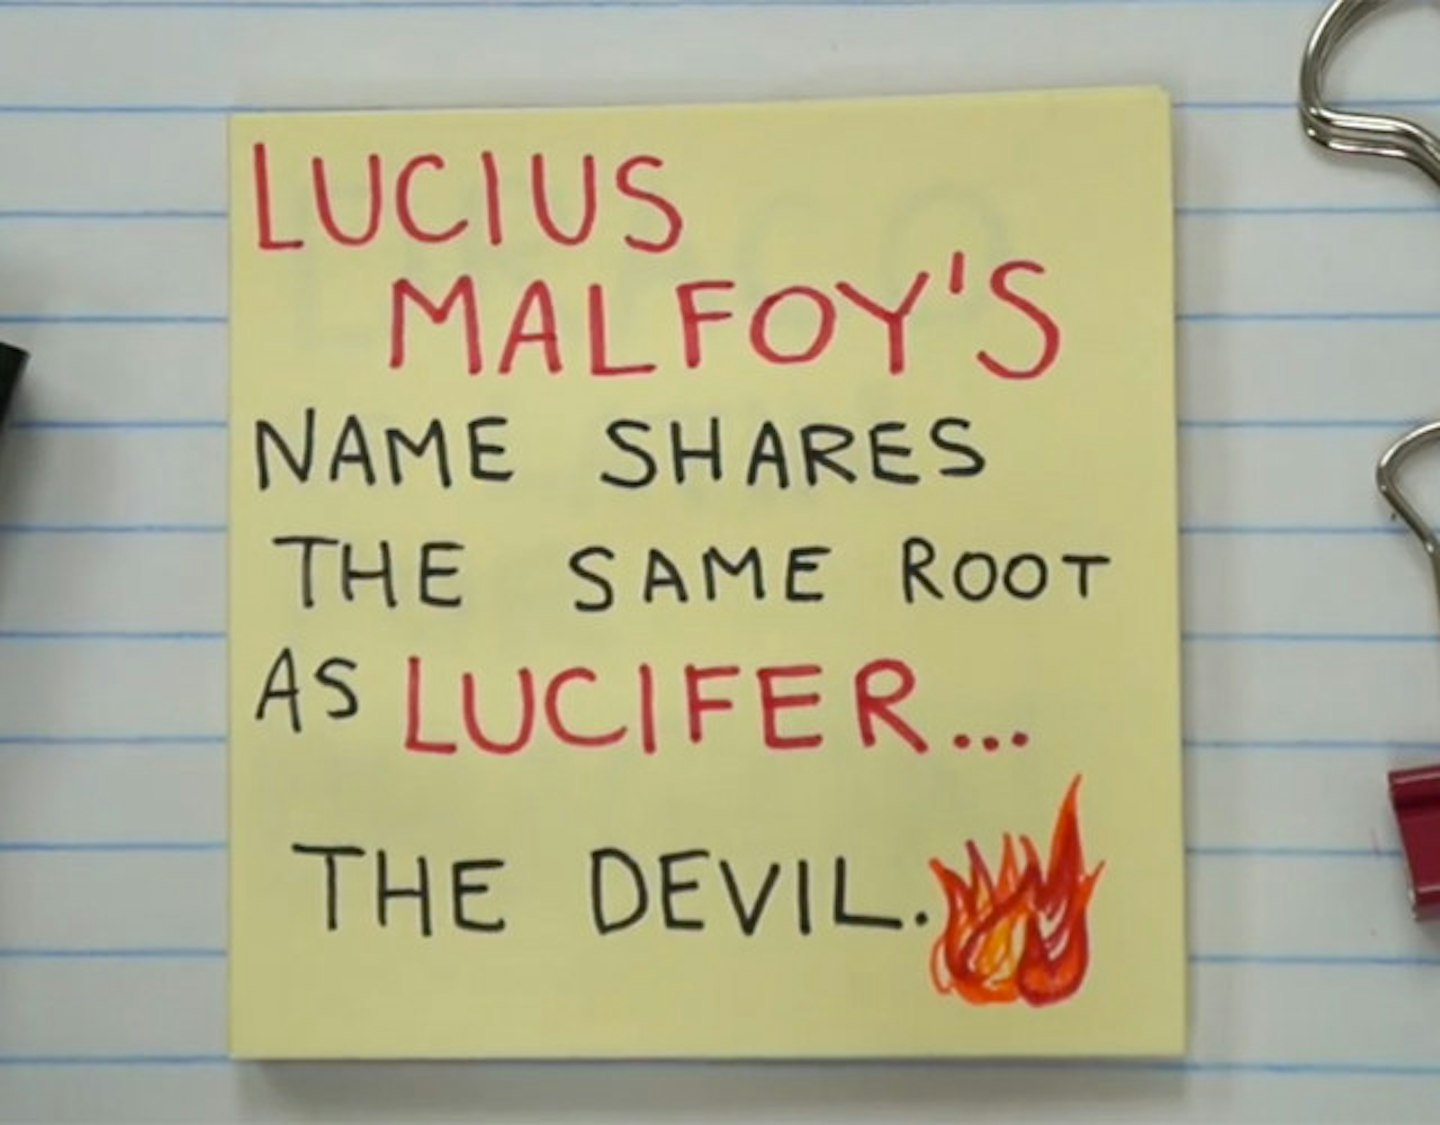 LUCIUS
MALFOY'S
NAME SHARES
THE SAME ROOT
AS LUCIFER...
THE DEVIL.